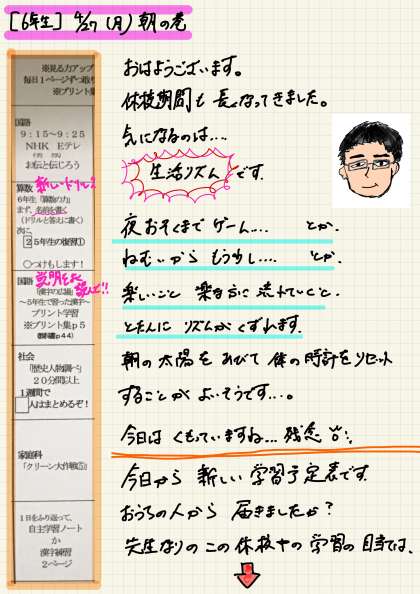 [6年生] 4/27 (月) 朝の巻
おはようございます。
休校期間も 長くなってきました。
気になるのは....
生活リズム です。
夜おそくまで ゲーム.... とか、
ねむいから もう少し.... とか、
楽しいこと 楽な方に 流れていくと、
とたんに リズムが くずれます。
朝の 太陽を あびて 体の 時計を リセット
することが よいそうです...。
今日は くもっていますね... 残念
今日から 新しい 学習予定表です。
おうちの人から 届きましたか?
先生なりの この 休校中の 学習の 目当ては、
※見る力アップ
毎日1ページずつ取り
※プリント集
国語
9:15～9:25
NHK Eテレ
お伝と伝じろう
算数
楽しいドリル?
6年生「算数の力」
まず、名前を書く
(ドリルと答えに書く)
次に、
25年生の復習①
○つけもします!
国語
説明をよく読んで!!
「漢字の広場」
～5年生で習った漢字～
プリント学習
※プリント集p5
(教科書p44)
社会
「歴史人物調べ」
20分間以上
1週間で
人はまとめるぞ!
家庭科
「クリーン大作戦⑤」
1日をふり返って、
自主学習ノート
か
漢字練習
2ページ